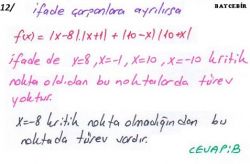 12/ ifade çarpanlara ayrılırsa
BAYCEBİR
f(x) = |x-8|.|x+1| + |10-x||10+x|
ifade de x=8, x=-1, x=10, x=-10 kritik
nokta oldıdan bu noktalarda türev
yoktur.
x=-8 kritik nokta olmadığından bu
noktada türev vardır.
CEVAP:B